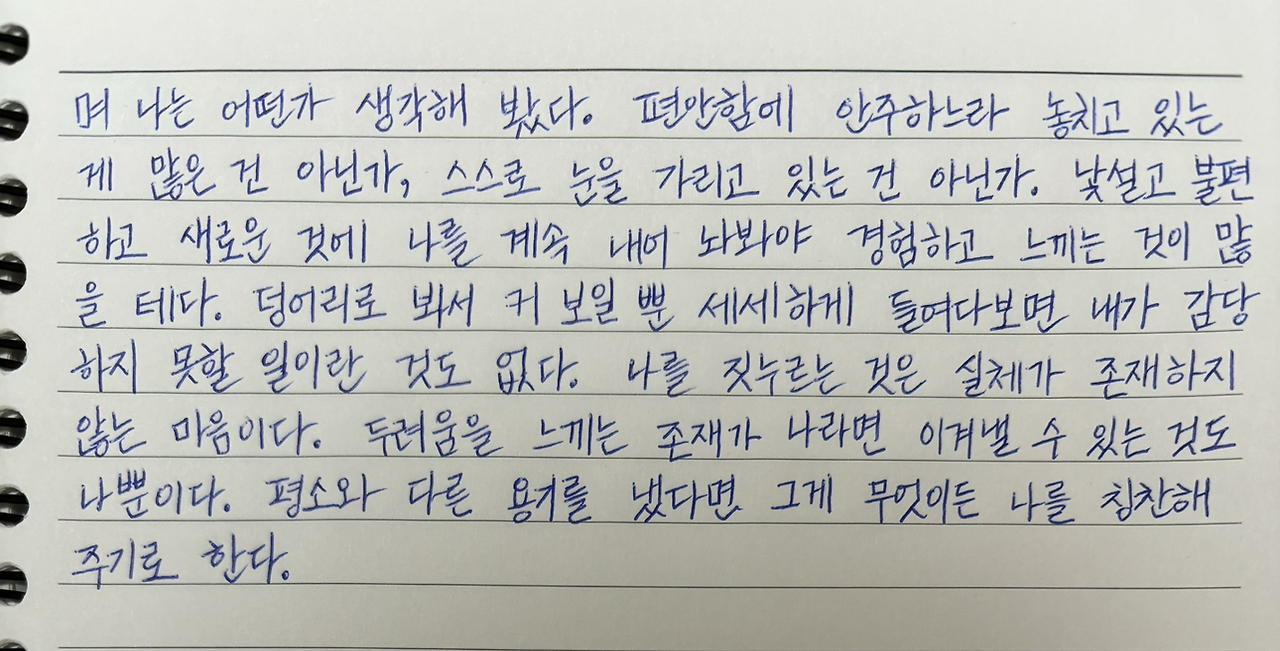 며 나는 어떤가 생각해 봤다. 편안함에 안주하느라 놓치고 있는
게 많은 건 아닌가, 스스로 눈을 가리고 있는 건 아닌가. 낯설고 불편
하고 새로운 것에 나를 계속 내어 놔봐야 경험하고 느끼는 것이 많
을 테다. 덩어리로 봐서 커 보일 뿐 세세하게 들여다보면 내가 감당
하지 못할 일이란 것도 없다. 나를 짓누르는 것은 실체가 존재하지
않는 마음이다. 두려움을 느끼는 존재가 나라면 이겨낼 수 있는 것도
나뿐이다. 평소와 다른 용기를 냈다면 그게 무엇이든 나를 칭찬해
주기로 한다.